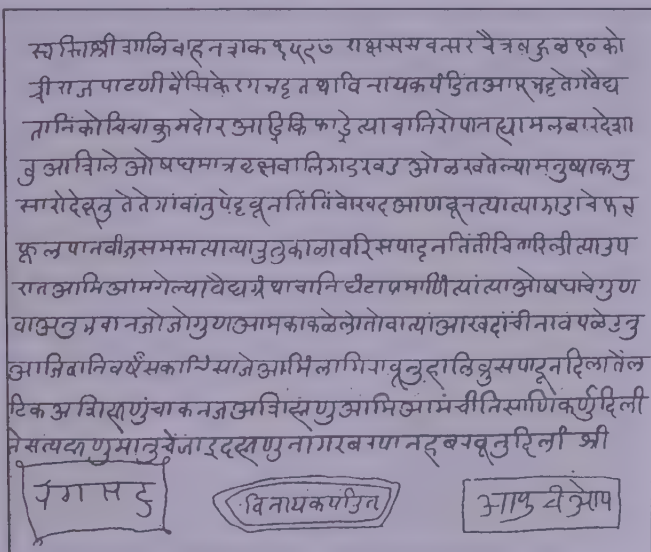 स्वस्तिश्री शालिवाहन शाक १५९७ राक्षस सवत्सर चैत्र बहुळ १० को
श्री राजपाटणी बैसिके रगभट्ट तथा विनायक पंडित आपु भट्ट ते गवैद्य
तानि कोचिचा कुमदोर आद्रि कि फाद्रे त्याचानिरोपान ह्या मलबार देशा
तु आशिले ओषध मात्र वालि झाड खड ओळखतेल्या मनुष्याक मु
सारो देवूनु ते ते गांवांतु पेट्टवून तिं तिं वोखद आणवून त्या त्या झाडाचे फल
फूल पान बीज समसा त्या त्या उतुकाळावरि सपादून तिं तीं चितारिली त्या उप
रात आमि आमगेल्या वैद्य ग्रंथाचानि घंटा प्रमाणि त्यां त्या ओषधाचे गुण
वा अनुभवान जो जो गुण आमका कळेलो तो वा त्यां आखदांची नावं पळेउनु
आजि दोनि वर्षं सकाळि साजे आमि लागि रावूनु हालि व्रुस पादून दिला तैल
टिक अशि म्हणुंचाक नज अशि म्हणु आमि आमंची निसाणि कर्णु दिली
ते सत्य म्हणु मानुचें जाइद म्हणु नागरब रपान ह बरवूनु दिली श्री
रंगभट्ट
विनायक पंडित
आपु